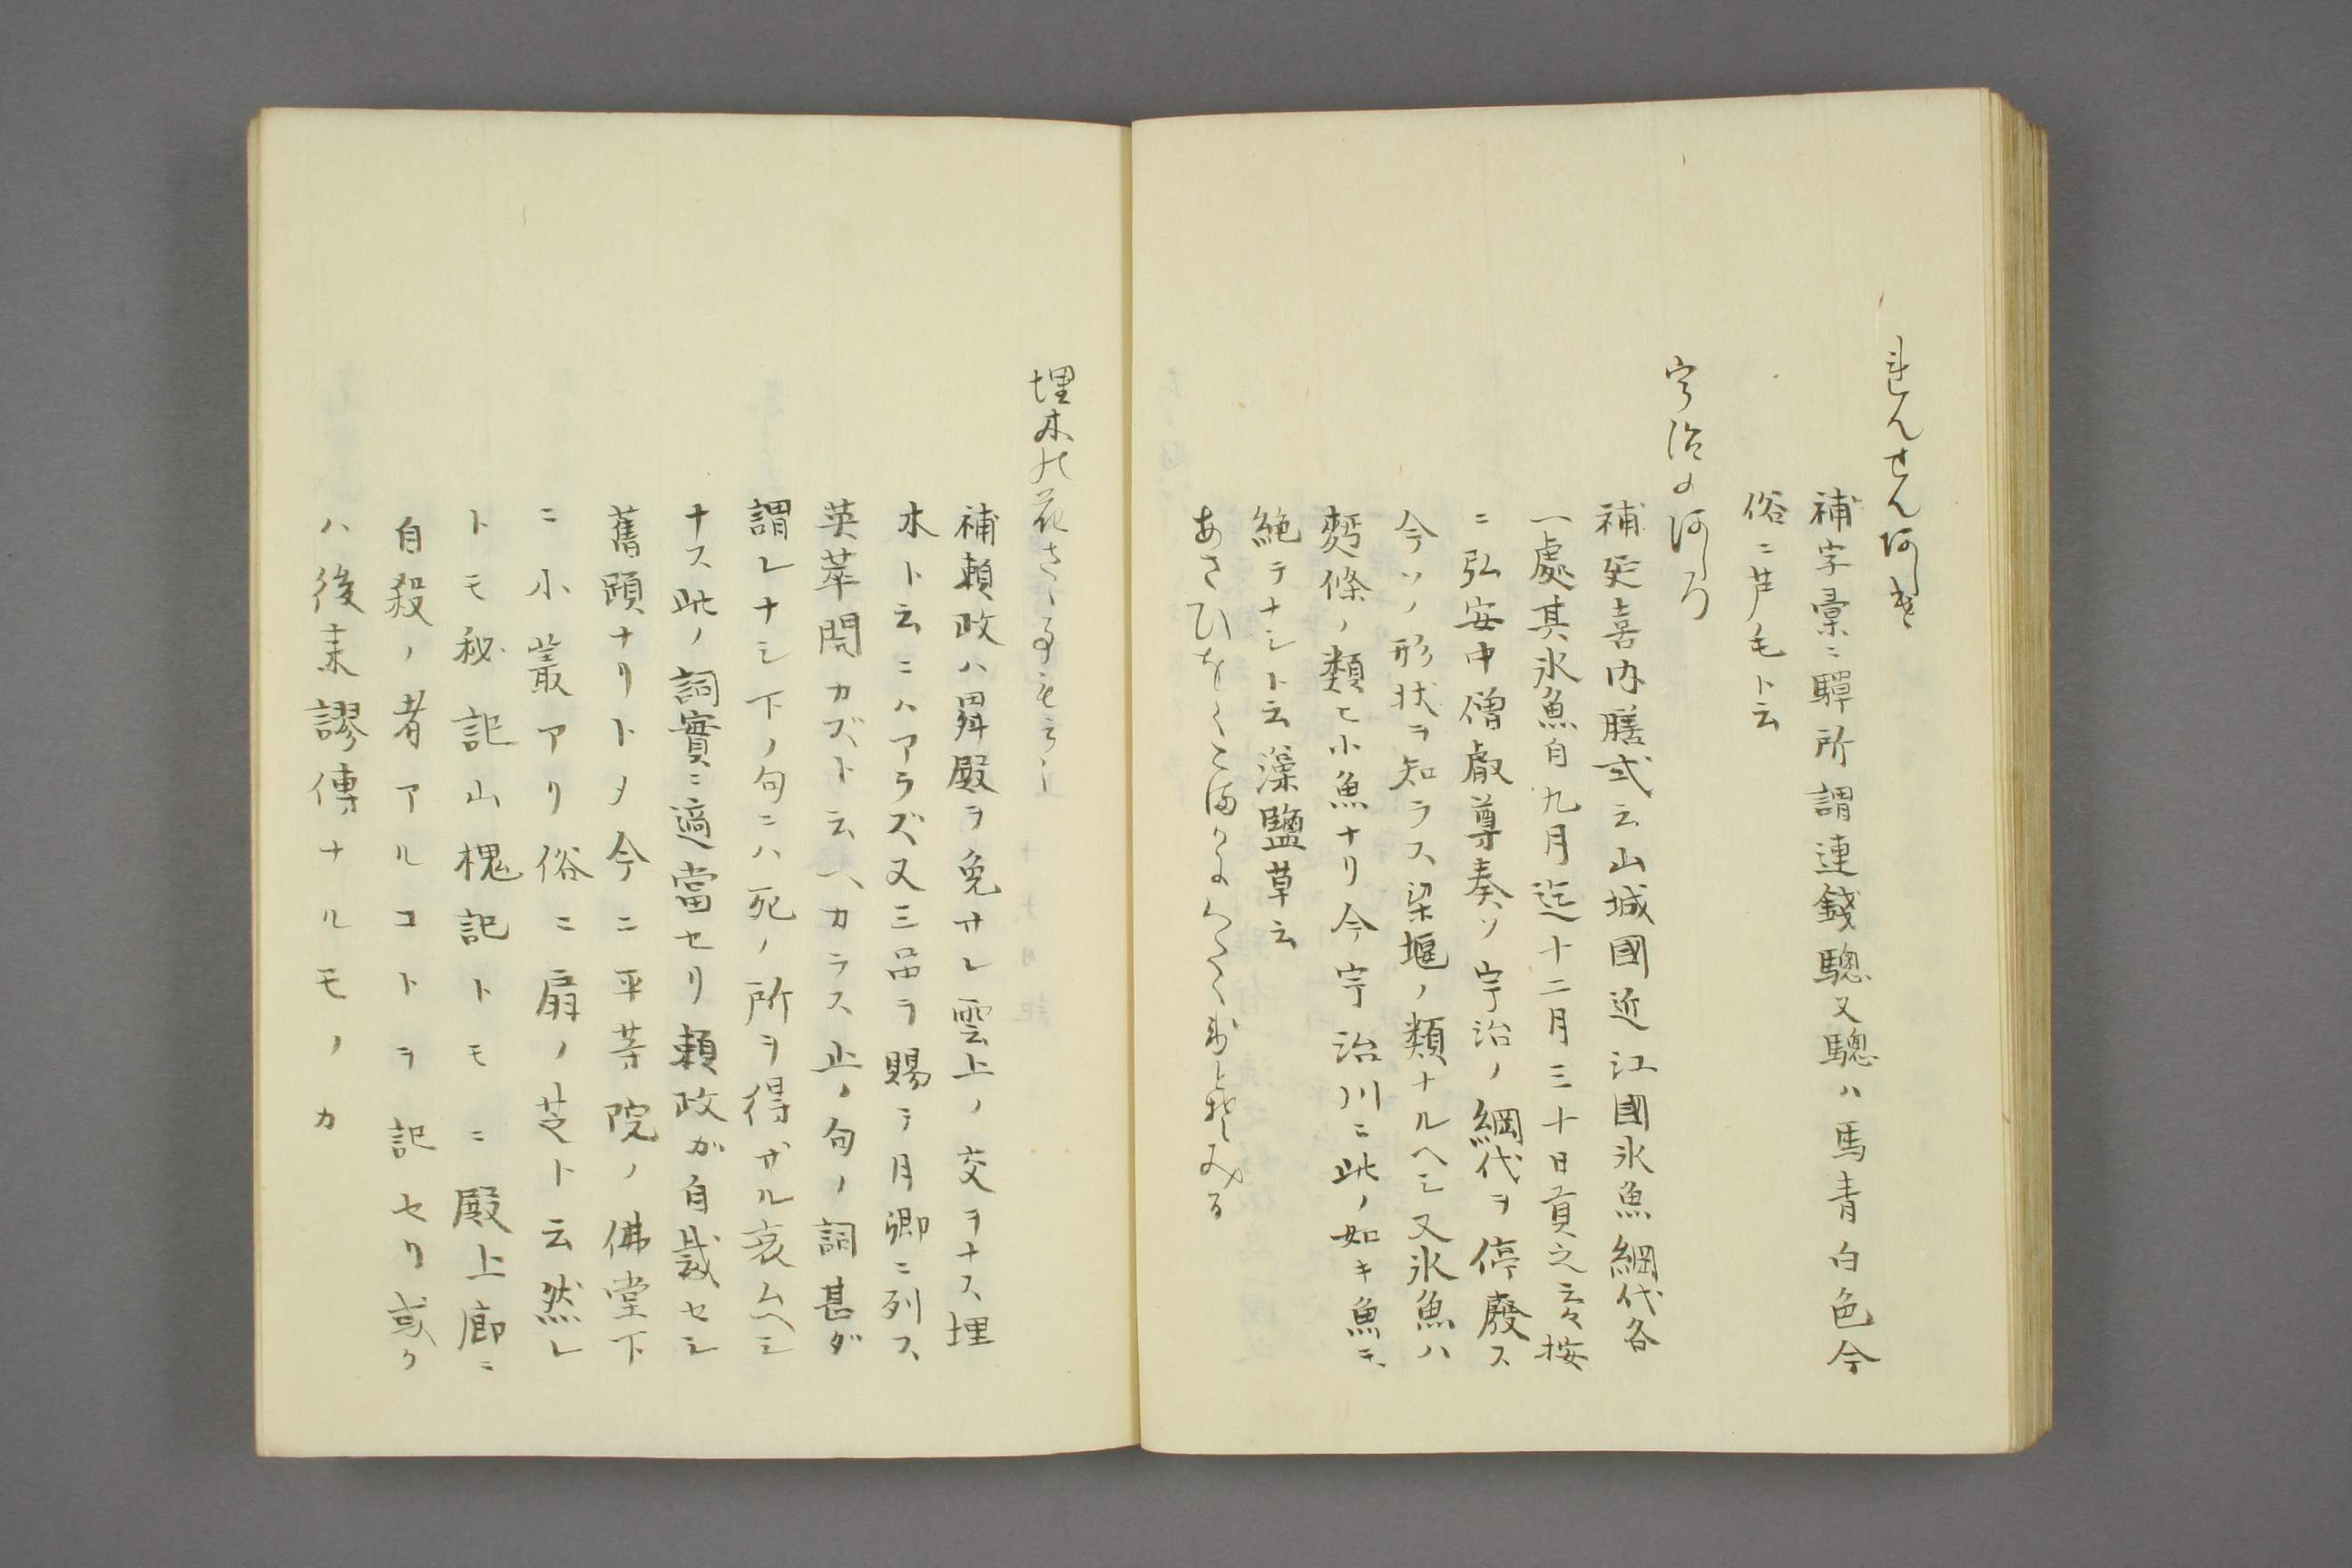 れんせんあしけ
補字彙ニ驒所謂連錢驄又驄ハ馬青白色今
俗ニ芦毛ト云
宇治のあしろ
補延喜内膳式云山城國近江國氷魚網代各
一處其氷魚自九月迄十二月三十日貢之云々按
ニ弘安中僧叡尊奏ソ宇治ノ網代ヲ停廢ス
今ソノ形状ヲ知ラス梁堰ノ類ナルヘシ又氷魚ハ
麪條ノ類ニ小魚ナリ今宇治川ニ此ノ如キ魚ニ
絶テナシト云藻鹽草云
あさひをく
埋木の花さく事もう
補頼政ハ昇殿ヲ免サレ雲上ノ交ヲナス埋
木ト云ニハアラズ又三品ヲ賜ラ月卿ニ列ス
英華開カズト云ヘカラス止ノ句ノ詞甚ダ
謂レナシ下ノ句ニハ死ノ所ヲ得ザル哀ムヘシ
ナス此ノ詞實ニ適當セリ頼政が自裁セシ
舊蹟ナリトメ今ニ平等院ノ佛堂下
ニ小叢アリ俗ニ扇ノ芝ト云然レ
トモ秘記山槐記トモニ殿上廊ニ
自殺ノ者アルコトヲ記セリ或ハ
ハ後来謬傳ナルモノカ